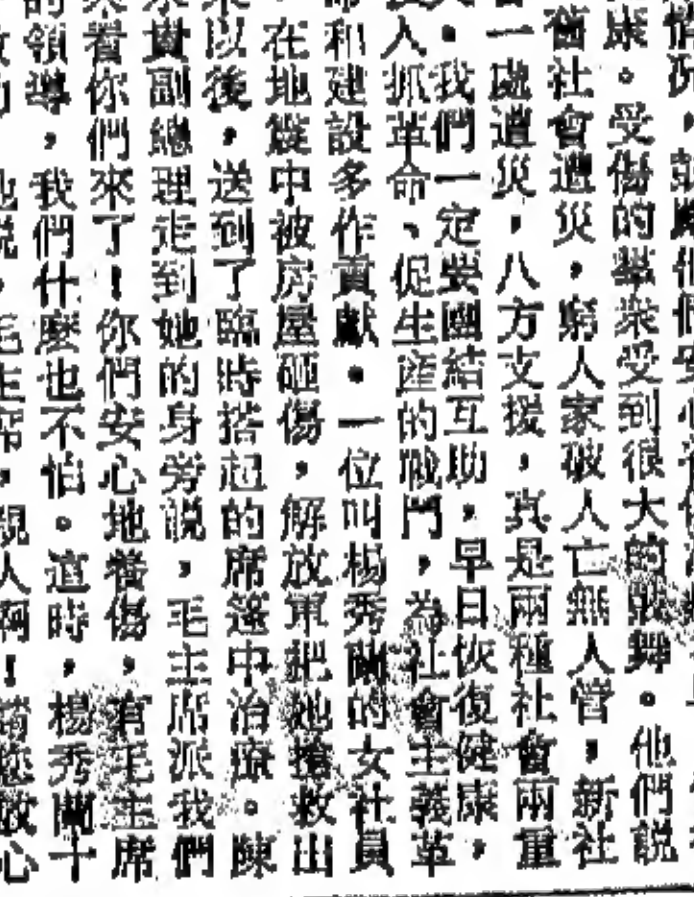 情況，鼓勵他們安心
康。受傷的羣衆受到很大的鼓舞。他們說
舊社會遭災，窮人家破人亡無人管，新社
一處遭災，八方支援，真是兩種社會兩重
。我們一定要團結互助，早日恢復健康，
人抓革命、促生產的戰鬥，為社會主義革
和建設多作貢獻。一位叫楊秀蘭的女社員
，在地震中被房屋砸傷，解放軍把她搶救出
以後，送到了臨時搭起的席篷中治療。陳
永貴副總理走到她的身旁說，毛主席派我們
來看你們來了！你們安心地養傷，有毛主席
的領導，我們什麼也不怕。這時，楊秀蘭十
地說，毛主席，親人啊！